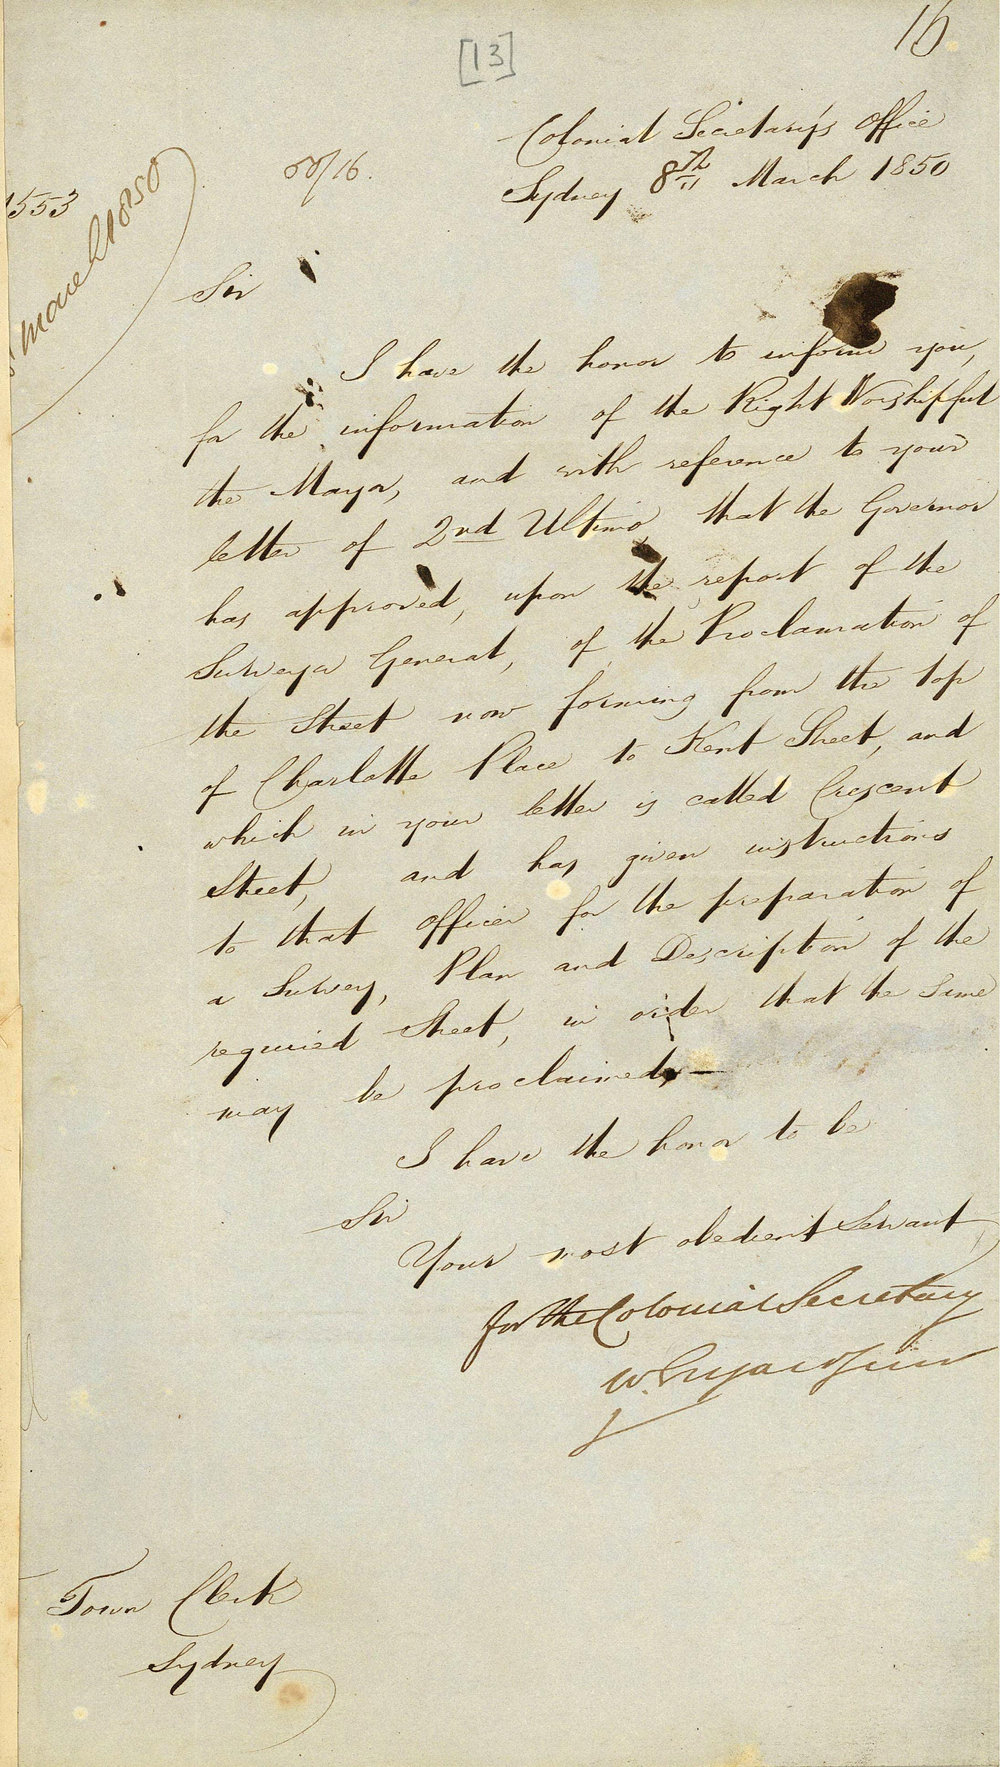 16
[13]
Colonial Secretary's Office
50/16.
Sydney 8th March 1850
1553
March 1850
Sir
I have the honor to inform you,
for the information of the Right Worshipful
the Mayor, and with reference to your
letter of 2nd Ultimo, that the Governor
has approved, upon the report of the
Surveyor General, of the Proclamation of
the Street now forming from the top
of Charlotte Place to Kent Street, and
which in your letter is called Crescent
Street, and has given instructions
to that Officer for the preparation of
a Survey, Plan and Description of the
required Street, in order that the same
may be proclaimed,—
I have the honor to be
Sir
Your most obedient Servant
for the Colonial Secretary
W.
Town Clerk
Sydney